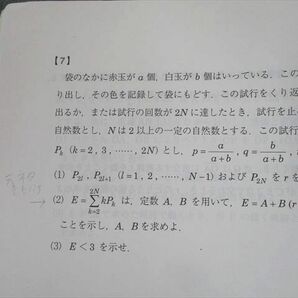 【7】
袋のなかに赤玉が a 個，白玉が b 個はいっている．この袋
り出し，その色を記録して袋にもどす．この試行をくり返
出るか，または試行の回数が 2N に達したとき，試行を止
自然数とし，N は 2 以上の一定の自然数とする．このとき
P_k (k=2, 3, ……, 2N) とし，p=a/(a+b)，q=b/(a+b)，
(1) P_{2l}，P_{2l+1} (l=1, 2, ……, N-1) および P_{2N} を r を
→ (2) E=\sum_{k=2}^{2N} kP_k は，定数 A，B を用いて，E=A+B(r
ことを示し，A，B を求めよ．
(3) E<3 を示せ．